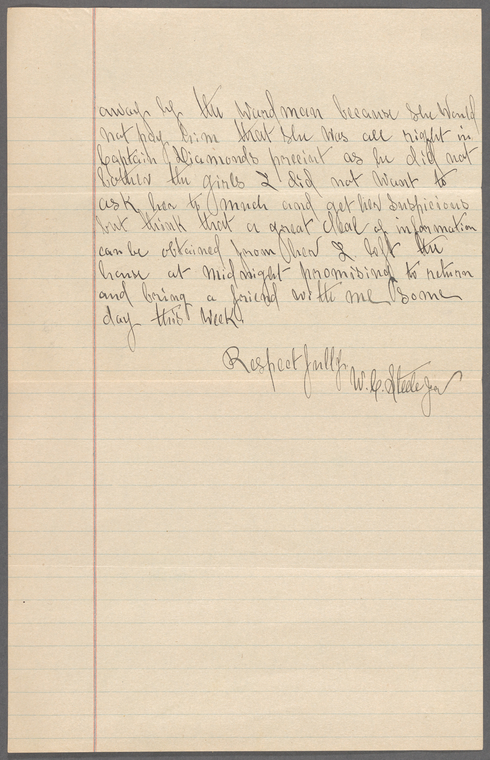 away by the Wardman because she would
not pay him that she was all right in
Captain Diamonds precint as he did not
bother the girls I did not want to
ask her to much and get her suspicious
but think that a great deal of information
can be obtained from her I left the
house at midnight promising to return
and bring a friend with me some
day this week.
Respectfully.
W. C. Steele Jr